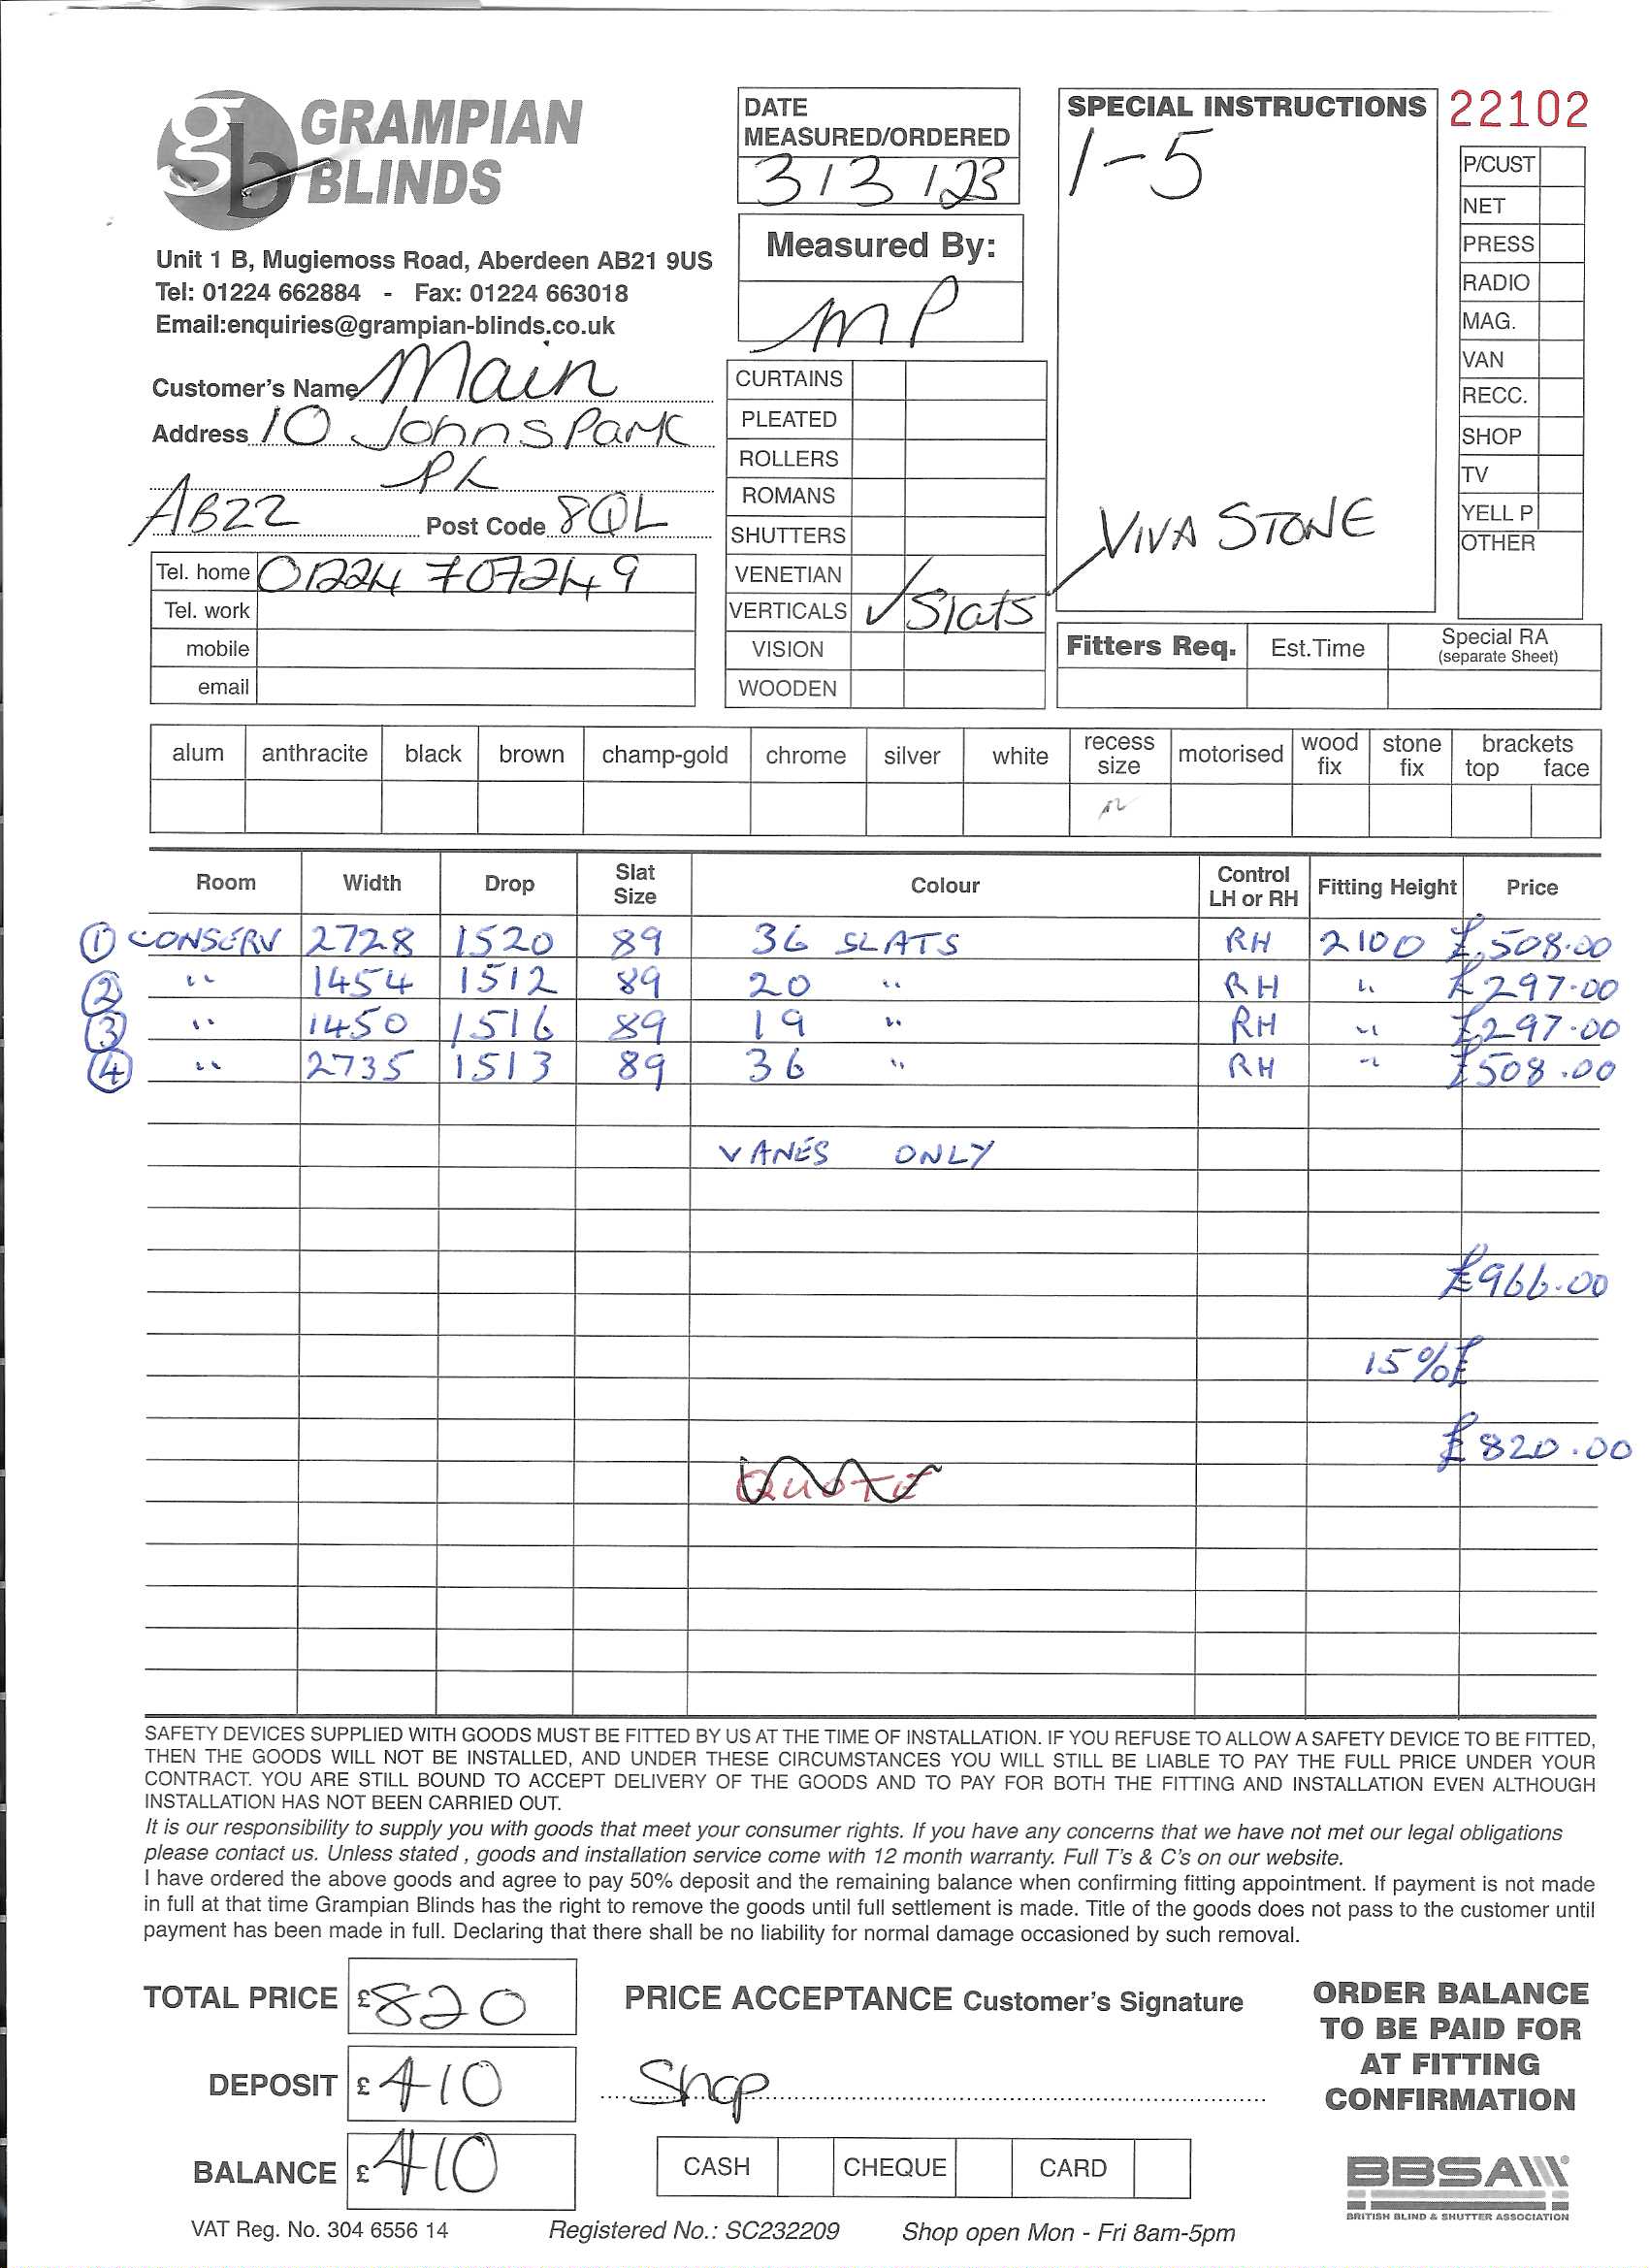 GRAMPIAN
BLINDS
Unit 1 B, Mugiemoss Road, Aberdeen AB21 9US
Tel: 01224 662884 - Fax: 01224 663018
Email:enquiries@grampian-blinds.co.uk
Customer's Name Main
Address 10 Johns Park
Pl
AB22 Post Code 8QL
Tel. home 01224 707249
Tel. work
mobile
email
DATE
MEASURED/ORDERED
3/3/23
Measured By:
MP
CURTAINS
PLEATED
ROLLERS
ROMANS
SHUTTERS
VENETIAN
VERTICALS ✓ Slats
VISION
WOODEN
SPECIAL INSTRUCTIONS
1-5
VIVA STONE
22102
P/CUST
NET
PRESS
RADIO
MAG.
VAN
RECC.
SHOP
TV
YELL P
OTHER
Fitters Req. Est.Time Special RA
(separate Sheet)
alum anthracite black brown champ-gold chrome silver white recess size motorised wood fix stone fix brackets top face
Room Width Drop Slat Size Colour Control LH or RH Fitting Height Price
① CONSERV 2728 1520 89 36 SLATS RH 2100 £508.00
② " 1454 1512 89 20 " RH " £297.00
③ " 1450 1516 89 19 " RH " £297.00
④ " 2735 1513 89 36 " RH " £508.00
VANES ONLY
£966.00
15% £
£820.00
QUOTE
SAFETY DEVICES SUPPLIED WITH GOODS MUST BE FITTED BY US AT THE TIME OF INSTALLATION. IF YOU REFUSE TO ALLOW A SAFETY DEVICE TO BE FITTED,
THEN THE GOODS WILL NOT BE INSTALLED, AND UNDER THESE CIRCUMSTANCES YOU WILL STILL BE LIABLE TO PAY THE FULL PRICE UNDER YOUR
CONTRACT. YOU ARE STILL BOUND TO ACCEPT DELIVERY OF THE GOODS AND TO PAY FOR BOTH THE FITTING AND INSTALLATION EVEN ALTHOUGH
INSTALLATION HAS NOT BEEN CARRIED OUT.
It is our responsibility to supply you with goods that meet your consumer rights. If you have any concerns that we have not met our legal obligations
please contact us. Unless stated , goods and installation service come with 12 month warranty. Full T's & C's on our website.
I have ordered the above goods and agree to pay 50% deposit and the remaining balance when confirming fitting appointment. If payment is not made
in full at that time Grampian Blinds has the right to remove the goods until full settlement is made. Title of the goods does not pass to the customer until
payment has been made in full. Declaring that there shall be no liability for normal damage occasioned by such removal.
TOTAL PRICE £820
DEPOSIT £410
BALANCE £410
PRICE ACCEPTANCE Customer's Signature
Shop
CASH CHEQUE CARD
ORDER BALANCE
TO BE PAID FOR
AT FITTING
CONFIRMATION
BBSA
BRITISH BLIND & SHUTTER ASSOCIATION
VAT Reg. No. 304 6556 14 Registered No.: SC232209 Shop open Mon - Fri 8am-5pm